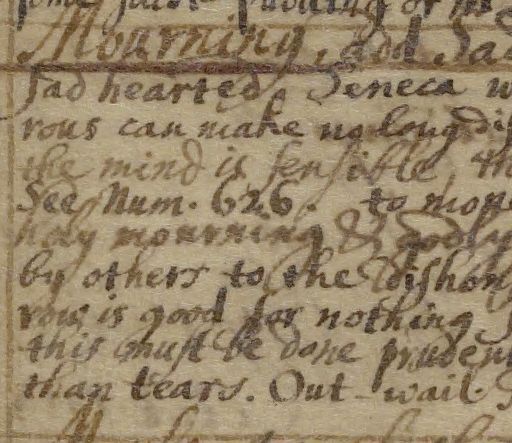 Mourning, and Sad
sad hearted. Seneca w
rous can make no long dis
the mind is sensible, th
See Num. 626. to mop
holy mourning & godly
by others to the dishon
row is good for nothing
this must be done pruden
than tears. Out-wail.